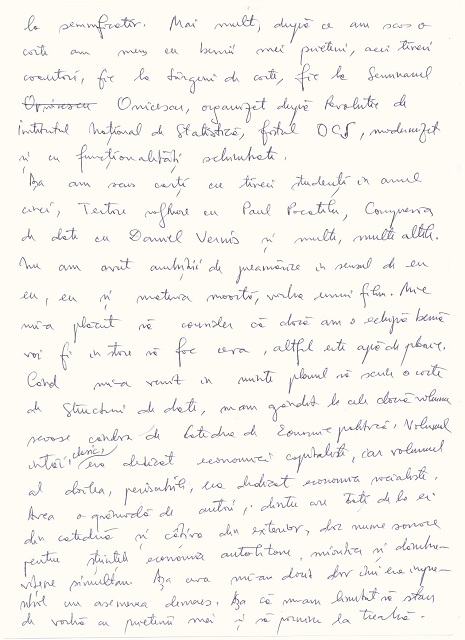 la semnificativ. Mai mult, după ce am scos o
carte am mers cu bunii mei prieteni, acei tineri
coautori, fie la târguri de carte, fie la Seminarul
Onicescu, organizat după Revoluție de
Institutul Național de Statistică, fostul DCS, modernizat
și cu funcționalități schimbate.
Așa am scos cărți cu tineri studenți în anul
cinci, Testare software cu Paul Pocatilu, Compresia
de date cu Daniel Verniș și multe, multe altele.
Nu am avut ambiții de preamărire în sensul de eu
eu, eu și mătura noastră, vorba unui film. Mie
mi-a plăcut să consider că dacă am o echipă bună
voi fi în stare să fac ceva, altfel este apă de ploaie.
Când mi-a venit în minte planul să scriu o carte
de Structuri de date, m-am gândit la cele două volume
scoase cândva de Catedra de Economie politică. Volumul
întâi, clasic, era dedicat economiei capitaliste, iar volumul
al doilea, perisabil, era dedicat economia socialistă.
Avea o grămadă de autori, dintre care toți de la ei
din catedră și câțiva din exterior, doar nume sonore
pentru științele economice autohtone,
simultan. Așa ceva mi-am dorit dar îmi era impo-
sibil un asemenea demers. Așa că m-am limitat să stau
de vorbă cu prietenii mei și să pornim la treabă.